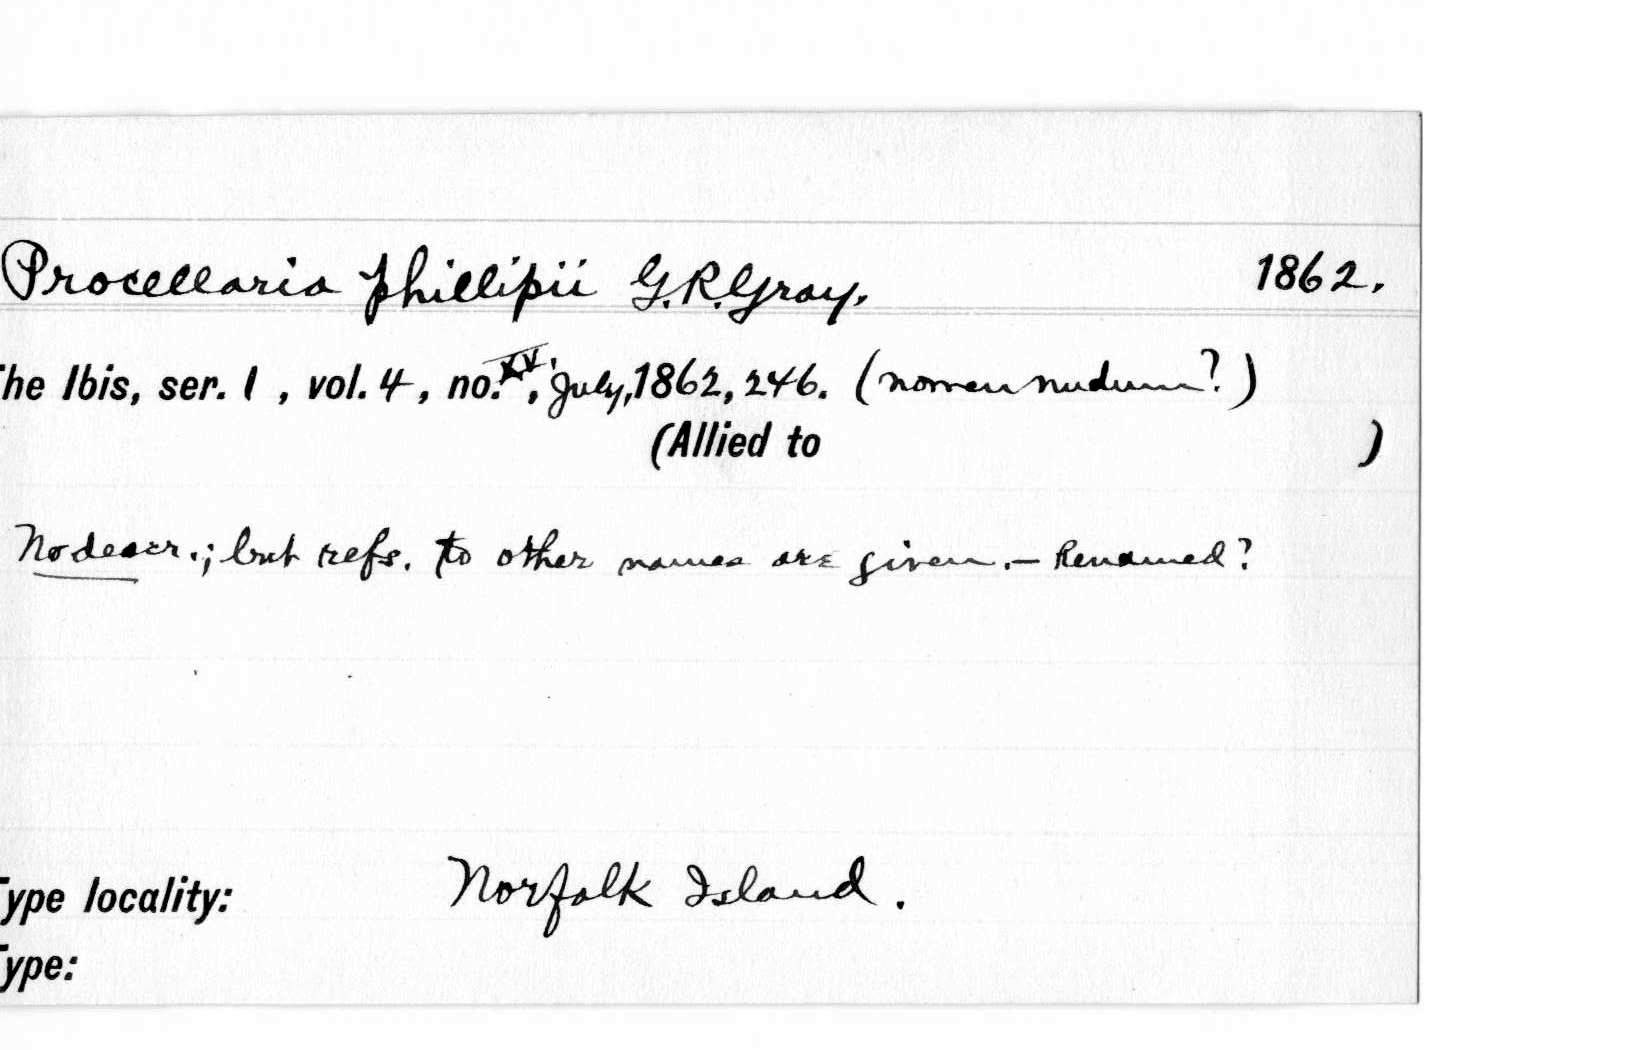 Procellaria phillipii G.R.Gray. 1862.
The Ibis, ser. 1, vol. 4, no. XV, July, 1862, 246. (nomen nudum?)
(Allied to )
No descr.; but refs. to other names are given. — Renamed?
Type locality: Norfolk Island.
Type: